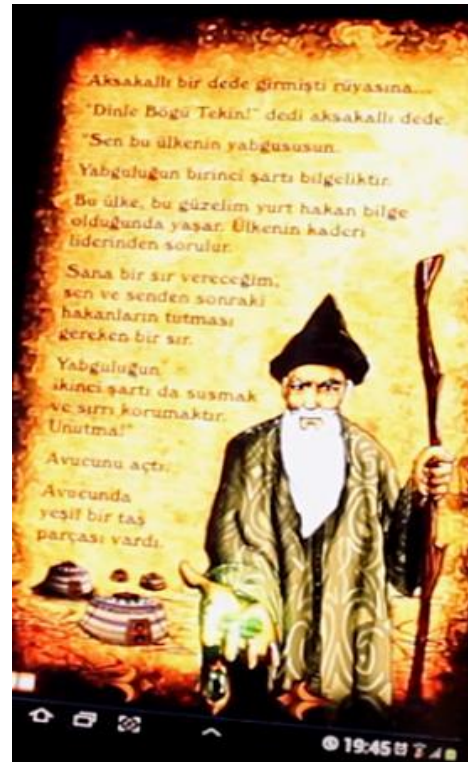 Aksakallı bir dede girmişti rüyasına...
"Dinle Bögü Tekin!" dedi aksakallı dede.
"Sen bu ülkenin yabgususun.
Yabguluğun birinci şartı bilgeliktir.
Bu ülke, bu güzelim yurt hakan bilge
olduğunda yaşar. Ülkenin kaderi
liderinden sorulur.
Sana bir sır vereceğim,
sen ve senden sonraki
hakanların tutması
gereken bir sır.
Yabguluğun
ikinci şartı da susmak
ve sırrı korumaktır.
Unutma!"
Avucunu açtı.
Avucunda
yeşil bir taş
parçası vardı.
19:45